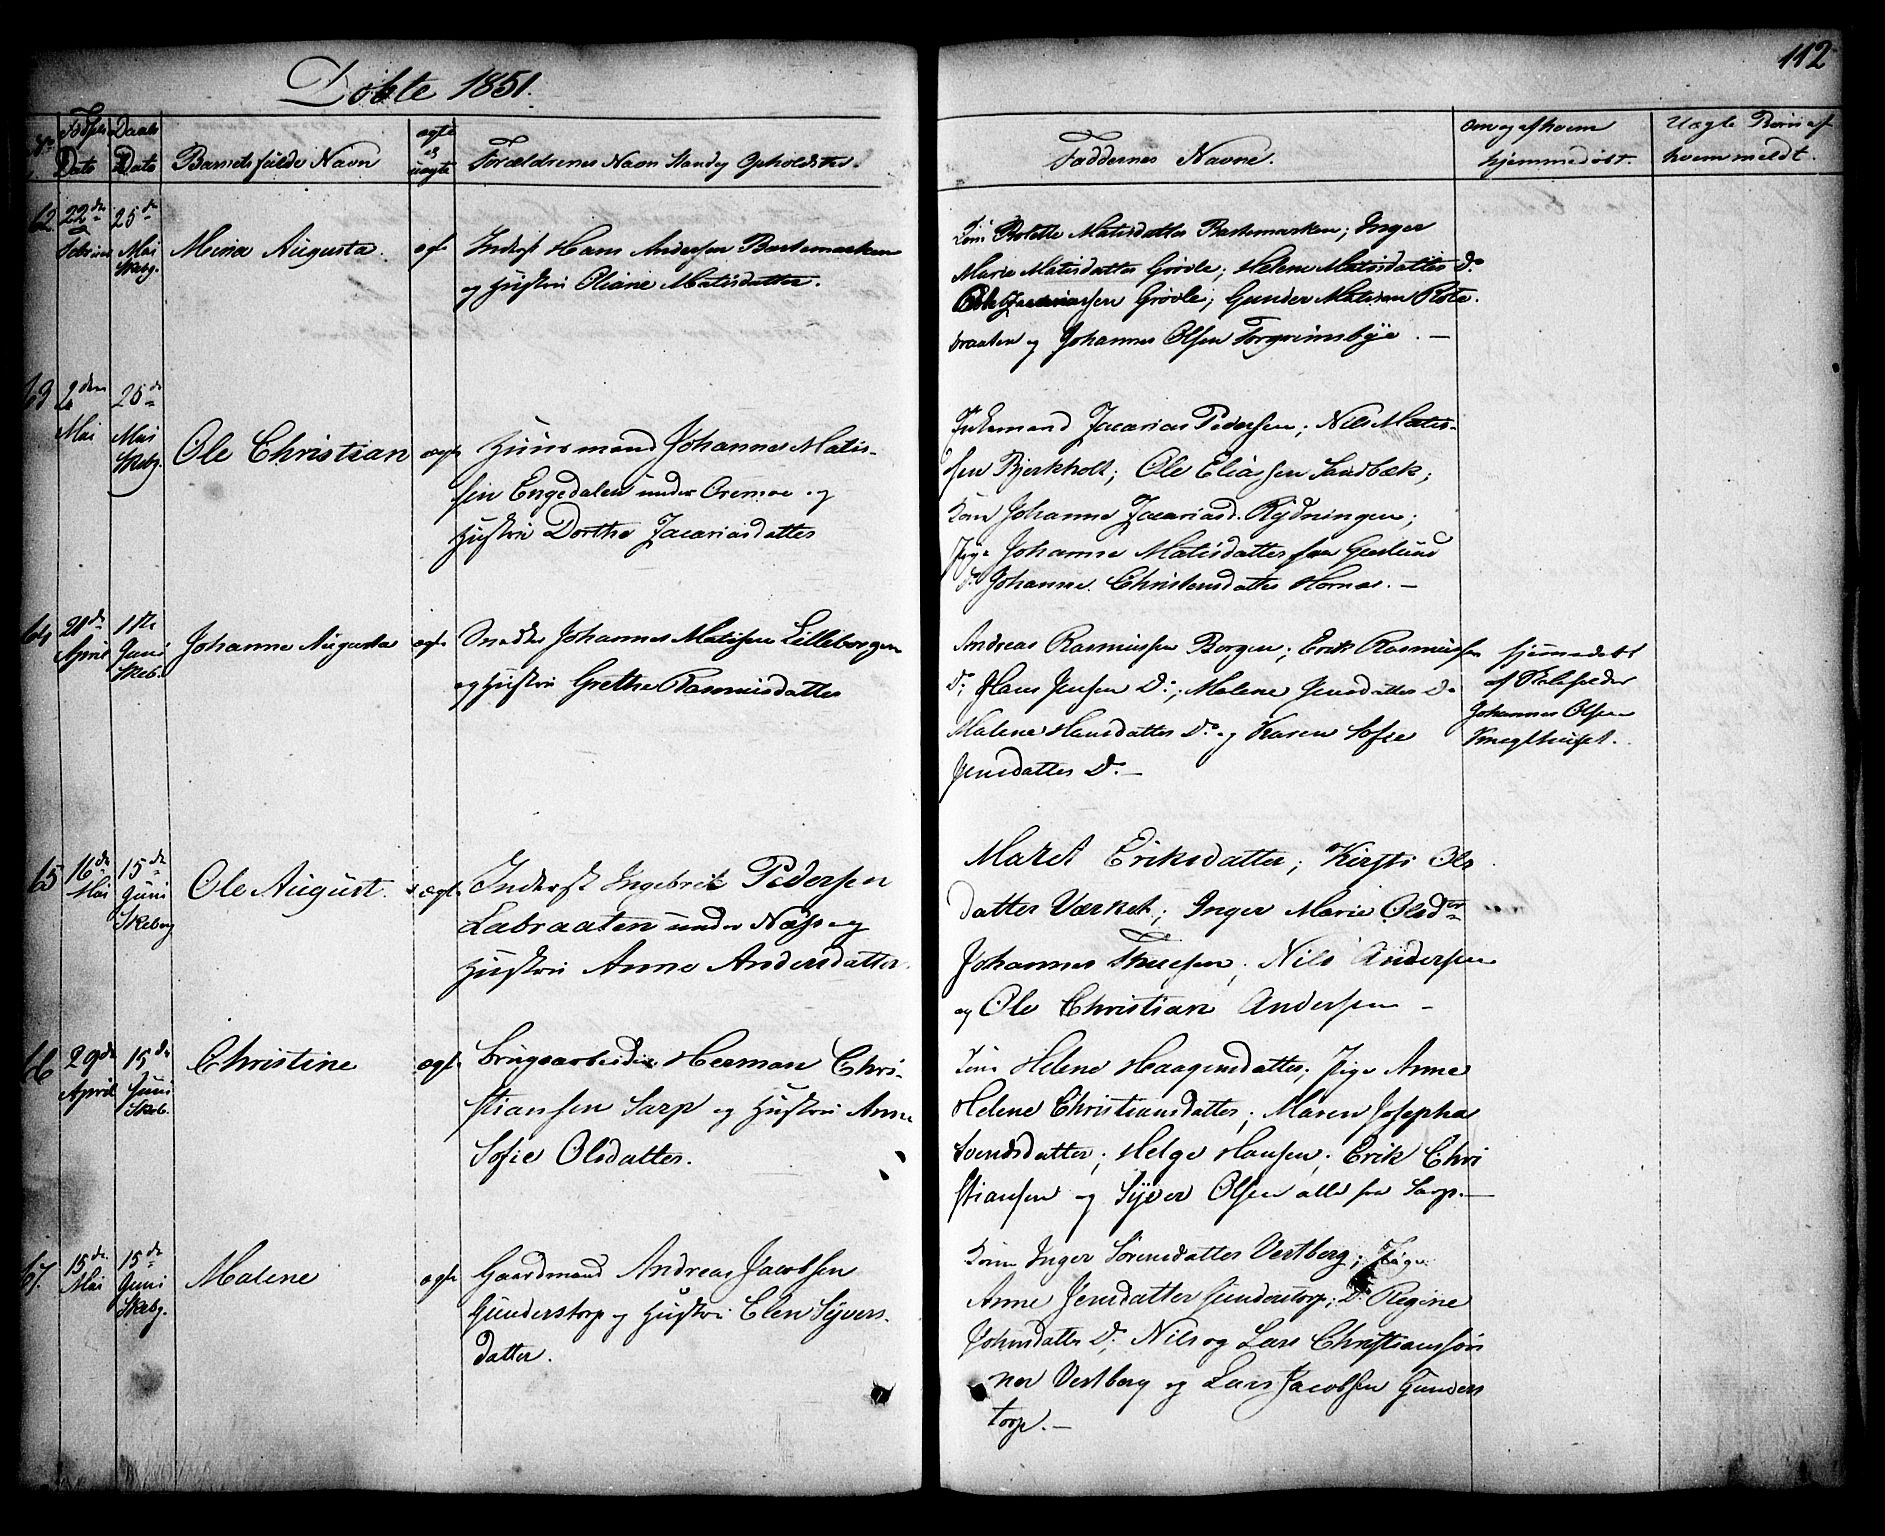 Døbte 1851.
112
No
Fødsels Dato
Daabs Dato
Barnets fulde Navn
ægte el uægte
Forældrenes Navn Stand og Opholdsted.
Faddernes Navne.
Om og af hvem hjemmedøbt.
Uægte Børn af hvem meldt.
62
22de
Februar
25de
Mai
Skebg.
Mina Augusta.
ægte
Inderst Hans Andersen Bastemarken
og Hustru Oliane Matisdatter.
Kone Bolette Matisdatter Bastemarken; Inger
Marie Matisdatter Grövle; Helene Matisdatter Do
Grövle; Gunder Matisen Röte
braaten og Johannes Olsen Torgrimsbye. —
63
2den
Mai
25de
Mai
Skebg.
Ole Christian
ægte
Huusmand Johannes Matis-
sen Engedalen under Oremoe og
Hustru Dorthe Jacariasdatter
Jacarias Pedersen; Nils Matis-
sen Bjerkholt; Ole Eliassen Sandbæk;
Kone Johanne Jacariasd. Rydningen;
Pige Johanne Matisdatter fra
Do Johanne Christensdatter Hornæs. —
64
21de
April
1ste
Juni
Skeb.
Johanne Augusta
ægte
Snedker Johannes Matisen Lilleborgen
og Hustru Grethe Rasmusdatter
Andreas Rasmussen Borgen; Erik Rasmussen
Do; Hans Jensen Do; Malene Jensdatter Do
Malene Hansdatter Do og Karen Sofie
Jensdatter Do. —
hjemmedöbt
af Skoleholder
Johannes Olsen
Knegthuset.
65
16de
Mai
15de
Juni
Skeberg
Ole August.
ægte
Inderst Ingebrit Pedersen
Labraaten under Næss og
Hustru Anne Andersdatter.
Maret Eriksdatter; Kirsti Ols
datter Værket; Inger Marie Olsdtr
Johannes Thuesen; Nils Andersen
og Ole Christian Andersen —
66
29de
April
15de
Juni
Skeb.
Christine
ægte
Brugsarbeider Herman Chri-
stiansen Sarp og Hustru Anne
Sofie Olsdatter.
Kone Helene Haagensdatter; Pige Anne
Helene Christiansdatter; Maren Josepha
Svendsdatter; Helge Hansen; Erik Chri
stiansen og Syver Olsen alle fra Sarp. —
67.
15de
Mai
15de
Juni
Skebg.
Malene
ægte
Gaardmand Andreas Jacobsen
Gunderstorp og Hustru Elen Syvers-
datter.
Kone Inger Sörensdatter Vestberg; Pige
Anne Jensdatter Gunderstorp; Do Regine
Johnsdatter Do; Nils og Lars Christianssön
ner Vestberg og Lars Jacobsen Gunders
torp. —